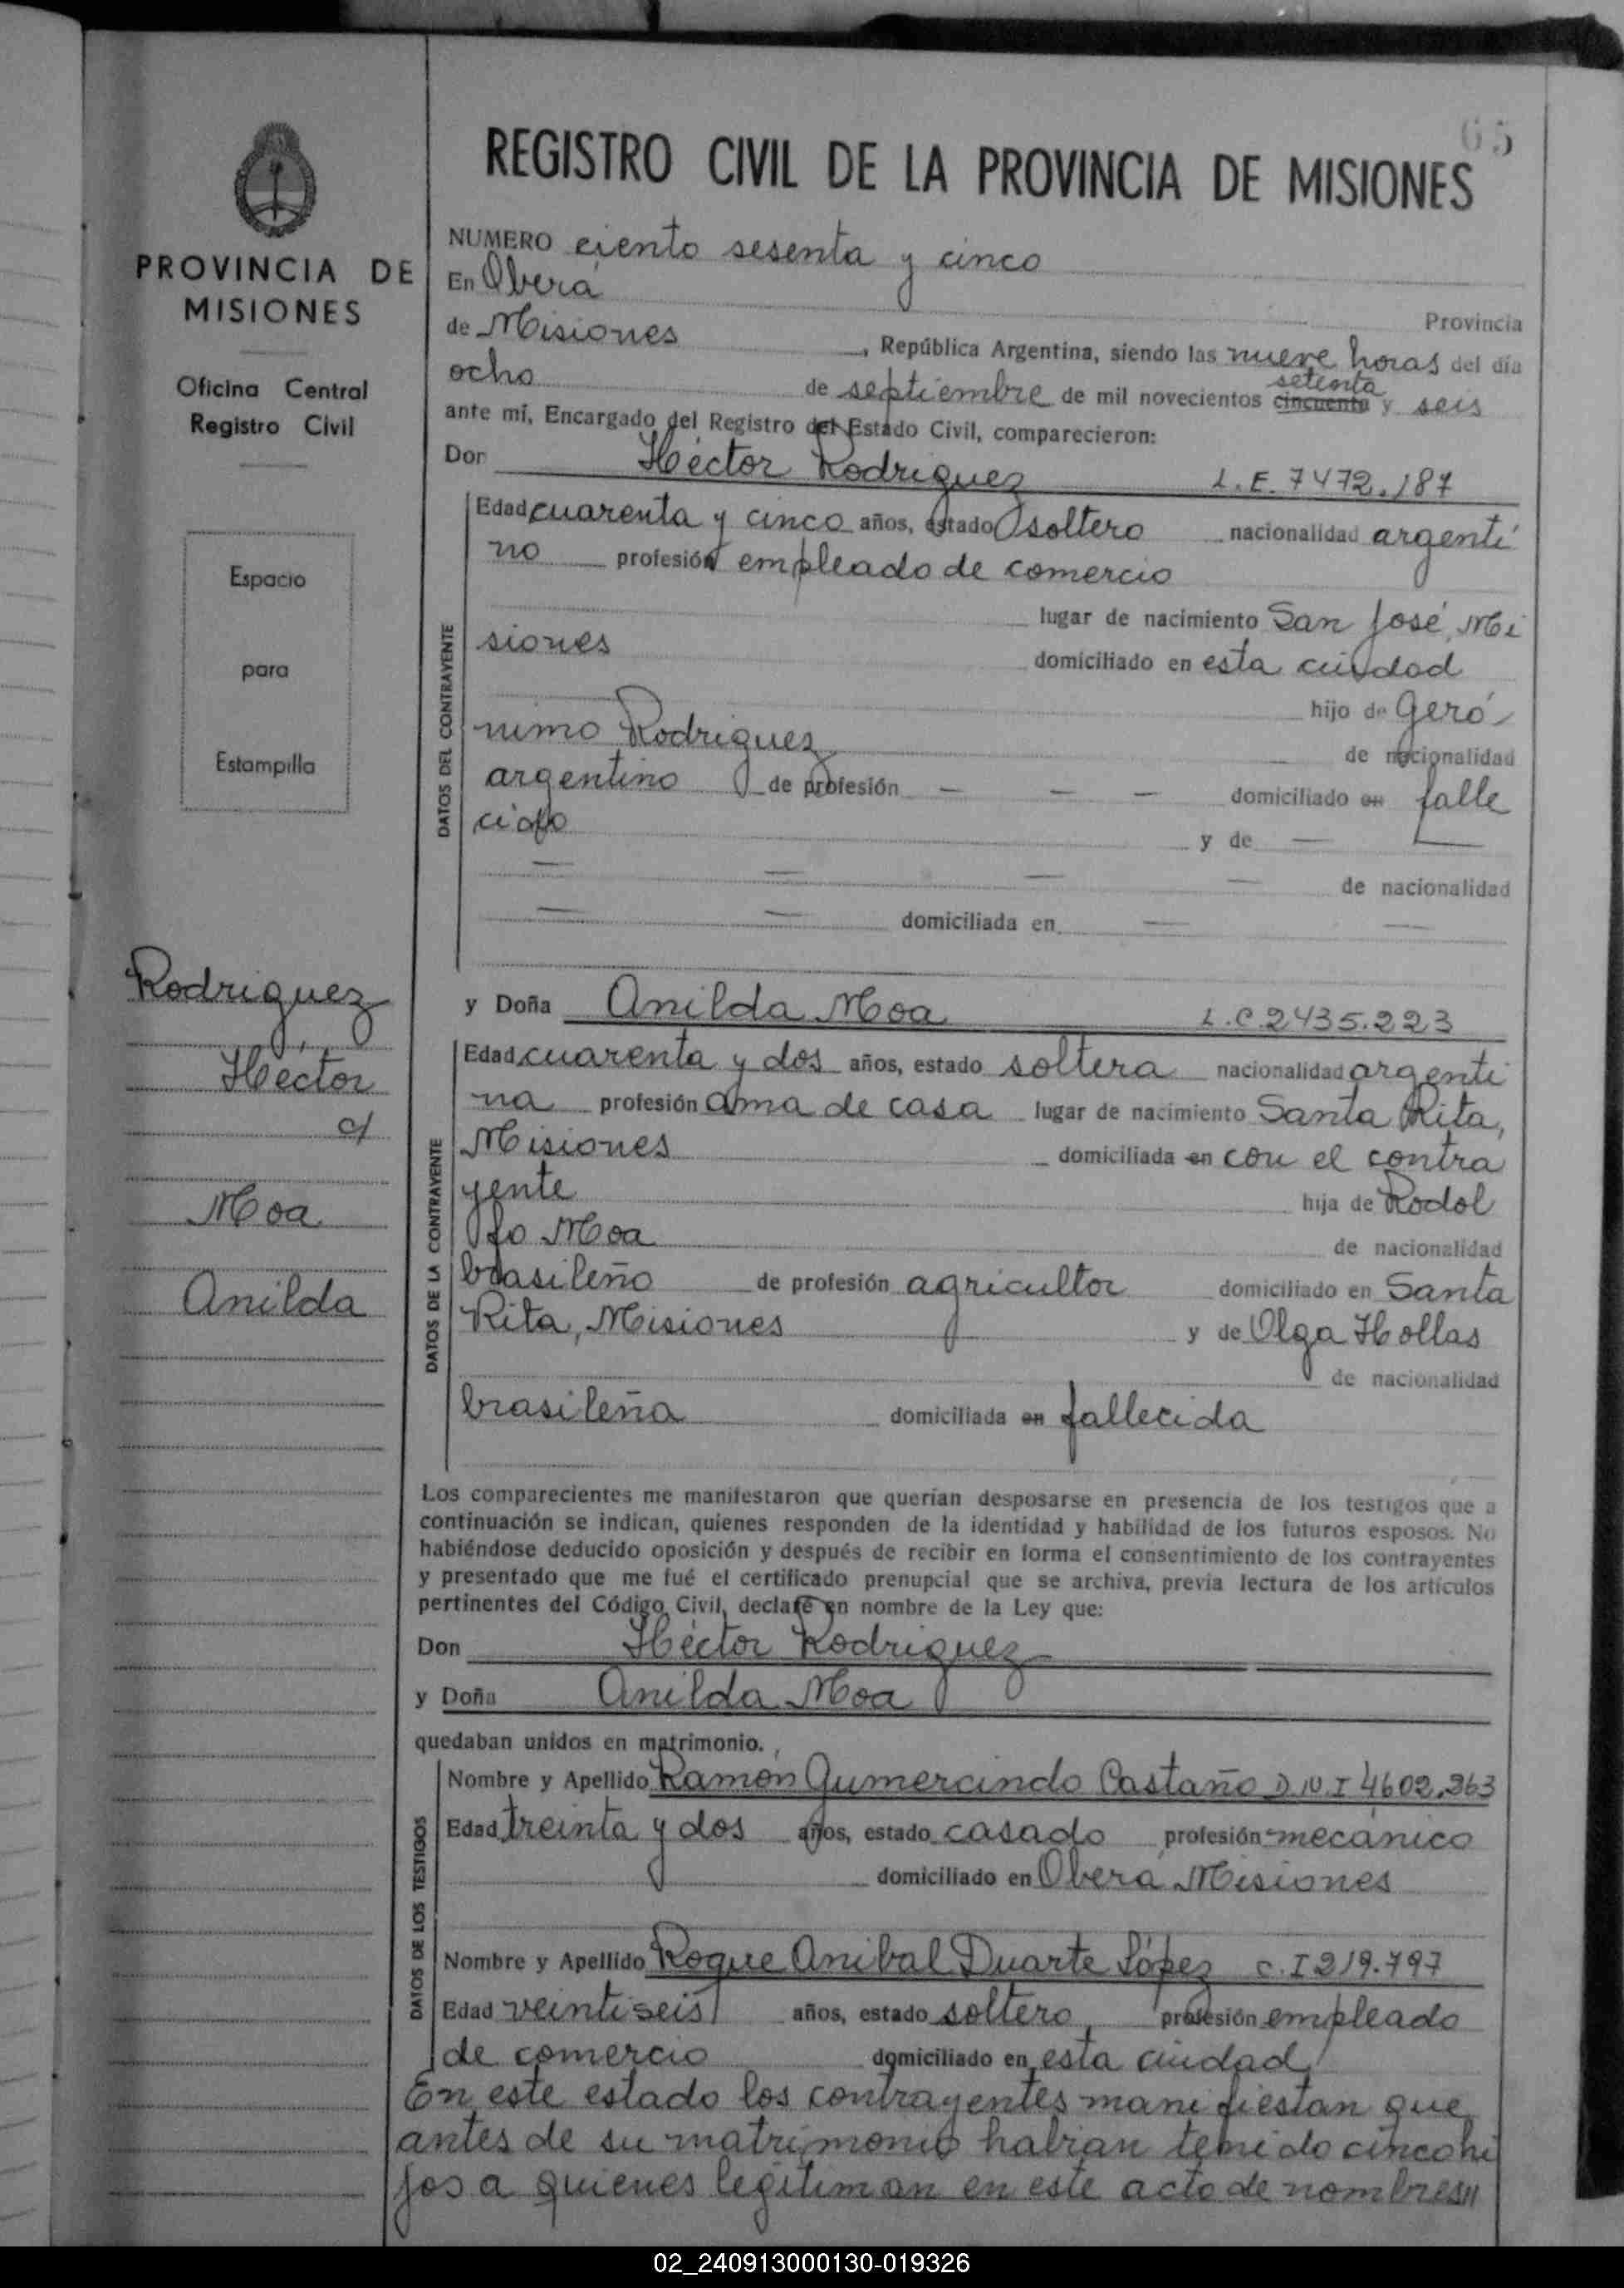 65
REGISTRO CIVIL DE LA PROVINCIA DE MISIONES
PROVINCIA DE
MISIONES
Oficina Central
Registro Civil
Espacio
para
Estampilla
Rodriguez
Héctor
c/
Moa
Anilda
NUMERO ciento sesenta y cinco
En Oberá
Provincia
de Misiones , República Argentina, siendo las nueve horas del día
setenta
ocho de septiembre de mil novecientos cincuenta y seis
ante mí, Encargado del Registro del Estado Civil, comparecieron:
Don Héctor Rodriguez L.E. 7472.187
DATOS DEL CONTRAYENTE
Edad cuarenta y cinco años, estado soltero nacionalidad argenti
no profesión empleado de comercio
lugar de nacimiento San José, Mi
siones domiciliado en esta ciudad
hijo de Geró
nimo Rodriguez de nacionalidad
argentino de profesión — — — domiciliado en falle
cido y de —
— — — — de nacionalidad
— — domiciliada en — —
y Doña Anilda Moa L.C. 2435.223
DATOS DE LA CONTRAYENTE
Edad cuarenta y dos años, estado soltera nacionalidad argenti
na profesión ama de casa lugar de nacimiento Santa Rita,
Misiones domiciliada en con el contra
yente hija de Rodol
fo Moa de nacionalidad
brasileño de profesión agricultor domiciliado en Santa
Rita, Misiones y de Olga Hollas
de nacionalidad
brasileña domiciliada en fallecida
Los comparecientes me manifestaron que querían desposarse en presencia de los testigos que a
continuación se indican, quienes responden de la identidad y habilidad de los futuros esposos. No
habiéndose deducido oposición y después de recibir en forma el consentimiento de los contrayentes
y presentado que me fué el certificado prenupcial que se archiva, previa lectura de los artículos
pertinentes del Código Civil, declaré en nombre de la Ley que:
Don Héctor Rodriguez
y Doña Anilda Moa
quedaban unidos en matrimonio.
DATOS DE LOS TESTIGOS
Nombre y Apellido Ramón Gumercindo Castaño D.N.I 4602.363
Edad treinta y dos años, estado casado profesión mecánico
domiciliado en Oberá, Misiones
Nombre y Apellido Roque Anibal Duarte López C.I 219.797
Edad veintiseis años, estado soltero, profesión empleado
de comercio domiciliado en esta ciudad
En este estado los contrayentes manifiestan que
antes de su matrimonio habian tenido cinco hi
jos a quienes legitiman en este acto de nombres"
02_240913000130-019326